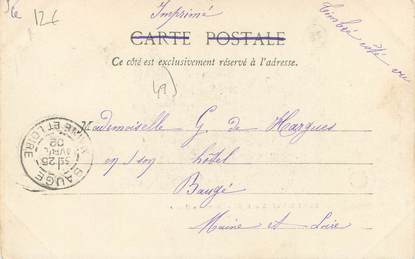 12€
Imprimé
Timbré côté vu
CARTE POSTALE
Ce côté est exclusivement réservé à l'adresse.
49
Mademoiselle G. de Hargues
en son hôtel
Baugé
Maine et Loire
BAUGÉ
MAINE ET LOIRE
25
AVRIL
02